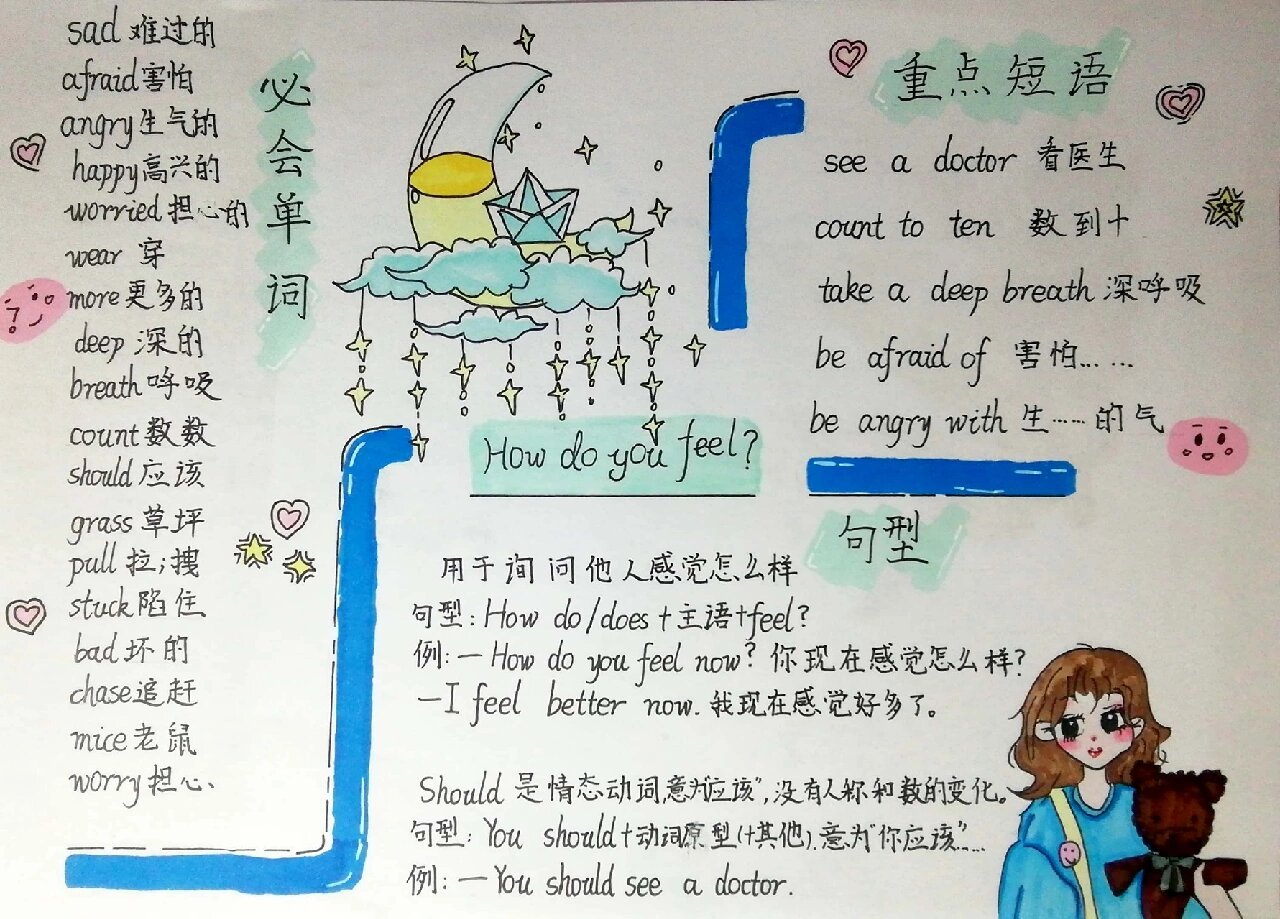 必会单词
sad 难过的
afraid 害怕
angry 生气的
happy 高兴的
worried 担心的
wear 穿
more 更多的
deep 深的
breath 呼吸
count 数数
should 应该
grass 草坪
pull 拉;拽
stuck 陷住
bad 坏的
chase 追赶
mice 老鼠
worry 担心
How do you feel?
重点短语
see a doctor 看医生
count to ten 数到十
take a deep breath 深呼吸
be afraid of 害怕……
be angry with 生……的气
句型
用于询问他人感觉怎么样
句型:How do/does+主语+feel?
例:—How do you feel now? 你现在感觉怎么样?
—I feel better now. 我现在感觉好多了。
Should 是情态动词,意为"应该",没有人称和数的变化。
句型:You should+动词原型(+其他).意为"你应该"……
例:—You should see a doctor.